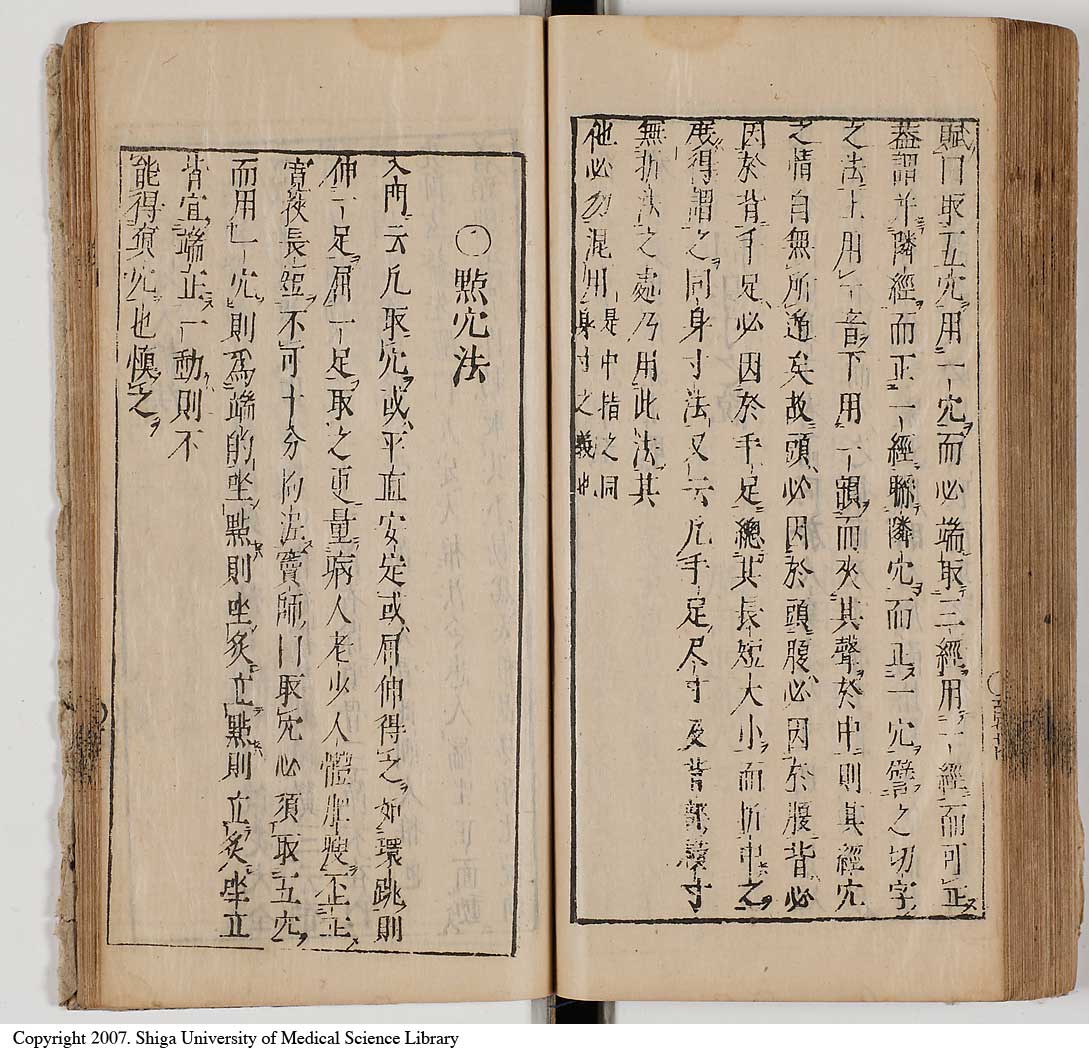 賦曰取五穴用一穴而必端取三經用一經而可正
蓋謂並隣經而正一經聯隣穴而正一穴譬之切字
之法上用一音下用一韻而夾其聲於中則其經穴
之情自無所遁矣故頭必因於頭腹必因於腹背必
因於背手足必因於手足總其長短大小而折中之
度得謂之同身寸法又云凡手足尺寸及背部橫寸
無折法之處乃用此法其
他必勿混用是中指之同
身寸之義也
〇點穴法
入門云凡取穴或平直安定或屈伸得之如環跳則
伸一足屈一足取之更量病人老少人體肥瘦
寬狹長短不可十分拘泥竇師曰取穴必須取五穴
而用一穴則為端的坐點則坐炙立點則立炙坐立
皆宜端正一動則不
能得真穴也慎之
Copyright 2007. Shiga University of Medical Science Library